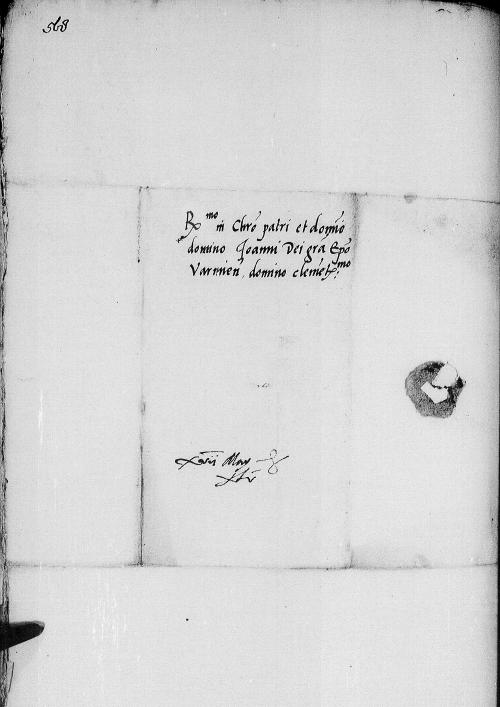 568
R^mo in Chr̃o patri et domĩo
domino Joanni Dei gr̃a Ep̃o
Varmieñ, domino clemẽt^mo
xvii May